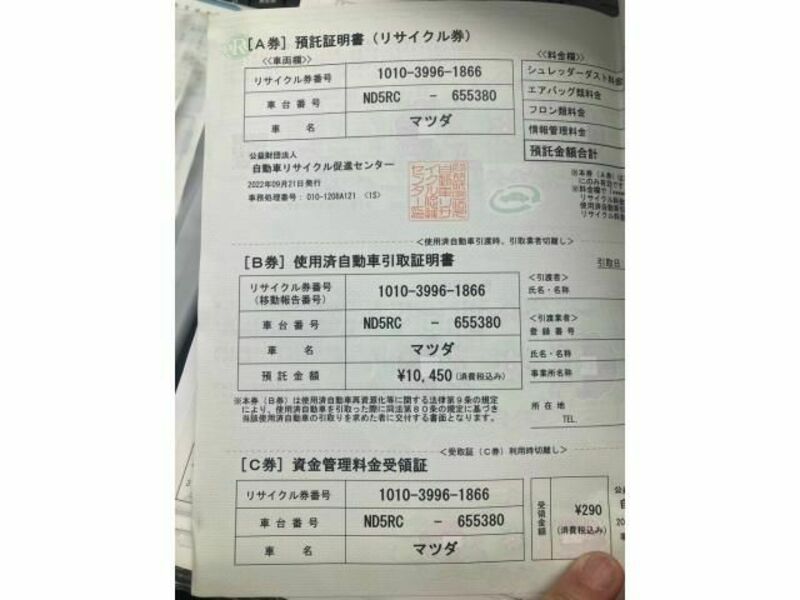 [A券] 預託証明書（リサイクル券）
<<車両欄>>
リサイクル券番号 1010-3996-1866
車台番号 ND5RC - 655380
車名 マツダ
<<料金欄>>
シュレッダーダスト料
エアバッグ類料金
フロン類料金
情報管理料金
預託金額合計
公益財団法人
自動車リサイクル促進センター
2022年09月21日発行
事務処理番号：010-1208A121 (1S)
※本券（A券）は
にのみ有効です
※料金欄で
リサイクル料
使用済自動車
リサイクル料
<使用済自動車引渡時、引取業者切離し>
[B券] 使用済自動車引取証明書
引取日
リサイクル券番号
（移動報告番号） 1010-3996-1866
車台番号 ND5RC - 655380
車名 マツダ
預託金額 ¥10,450（消費税込み）
<引渡者>
氏名・名称
<引渡業者>
登録番号
氏名・名称
事業所名称
所在地
TEL.
※本券（B券）は使用済自動車再資源化等に関する法律第9条の規定
により、使用済自動車を引取った際に同法第80条の規定に基づき
当該使用済自動車の引取りを求めた者に交付する書面となります。
<受取証（C券）利用時切離し>
[C券] 資金管理料金受領証
リサイクル券番号 1010-3996-1866
車台番号 ND5RC - 655380
車名 マツダ
受領金額 ¥290
（消費税込み）
公益
自
20
事